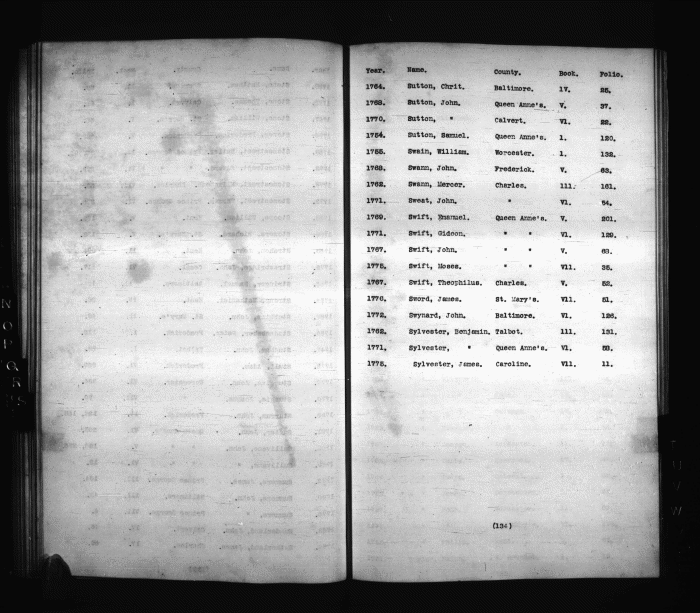 Year. Name. County. Book. Folio.
1764. Sutton, Chrit. Baltimore. 1V. 25.
1768. Sutton, John. Queen Anne's. V. 37.
1770. Sutton, " Calvert. V1. 22.
1754. Sutton, Samuel. Queen Anne's. 1. 120.
1755. Swain, William. Worcester. 1. 132.
1768. Swann, John. Frederick. V. 63.
1762. Swann, Mercer. Charles. 111. 161.
1771. Sweat, John. " V1. 64.
1769. Swift, Emanuel. Queen Anne's. V. 201.
1771. Swift, Gideon. " " V1. 129.
1767. Swift, John. " " V. 63.
1775. Swift, Moses. " " V11. 35.
1767. Swift, Theophilus. Charles. V. 52.
1776. Sword, James. St. Mary's. V11. 51.
1772. Swynard, John. Baltimore. V1. 126.
1762. Sylvester, Benjamin. Talbot. 111. 151.
1771. Sylvester, " Queen Anne's. V1. 58.
1775. Sylvester, James. Caroline. V11. 11.
(134)